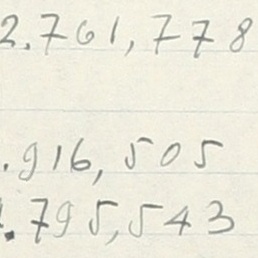 2.761,778
.916,505
.795,543